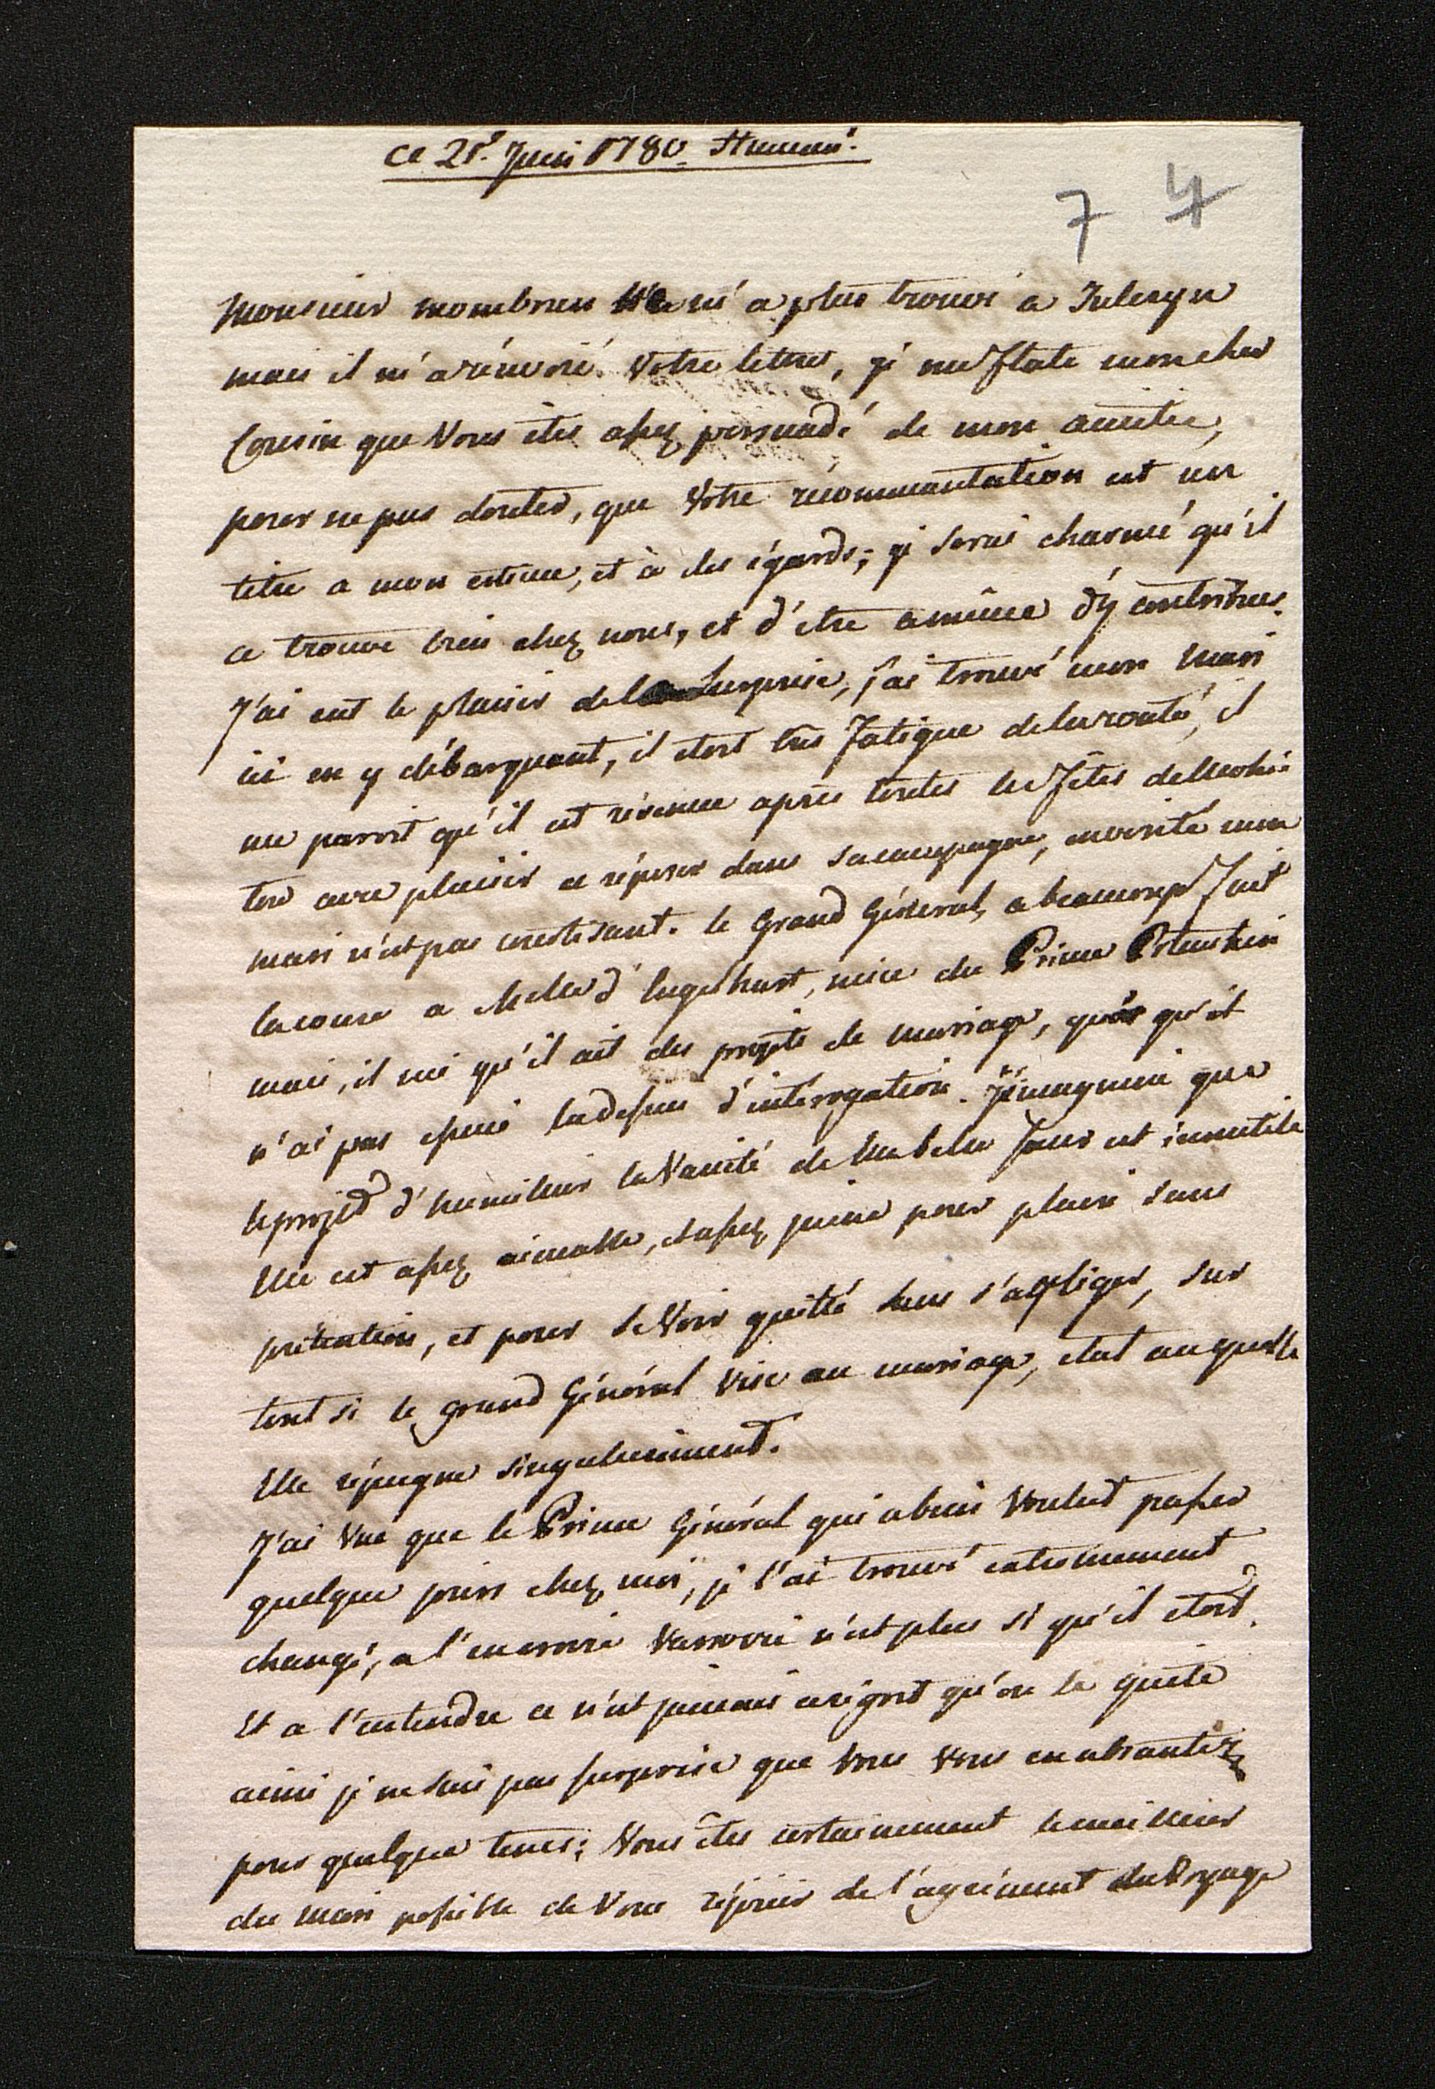 ce 21.e Juin 1780
7 4
Monsieur m'a plus trouvé a
mais il m'a rénvoié Votre lettre, je me flate mon cher
Cousin que Vous étes assez persuadé de mon amitie,
pour ne pas douter, que Votre récommentation est un
titre a mon estime, et à des égards; je serai charmé qu'il
ce trouve bien chez nous, et d'etre a même d'y contribuer.
J'ai eut le plaisir de la Surprise, j'ai trouvé mon Mari
ici en y débarquant, il etoit tres fatigue de la route, il
me paroit qu'il est révenue après toutes les fêtes de
avec plaisir ce réposer dans sa campagne, en verité mon
mari n'est pas courtisant. le Grand Général a beaucoup fait
la cour a Melle d' niece du Prince Potemkin
mais, il nie qu'il ait des projets de mariage, quoi qu'il
n'ai pas essuié la dessus d'intérogation. J'immagine que
le projet d'humilier la Vanité de Ma belle Soeur est innutile
Elle est assez aimable, et assez jeune pour plaire sans
prétention, et pour se Voir quitté sans s'affliger, sur
tout si le grand Général Vise au mariage, etat auquelle
Elle répugne singulierement.
J'ai Vue que le Prince Général qui a bien Voulut passer
quelque jours chez moi, je l'ai trouvé extremement
changé, a l'en croire Varsovie n'est plus si qu'il etoit.
Et a l'entendre ce n'est jamais a regret qu'on la quitte
ainsi je ne suis pas surprise que Vous Vous en absentiez
pour quelque tems; Vous êtes certainement le meillieur
des Mari possible de Vous réjouir de l'agrément du Voyage